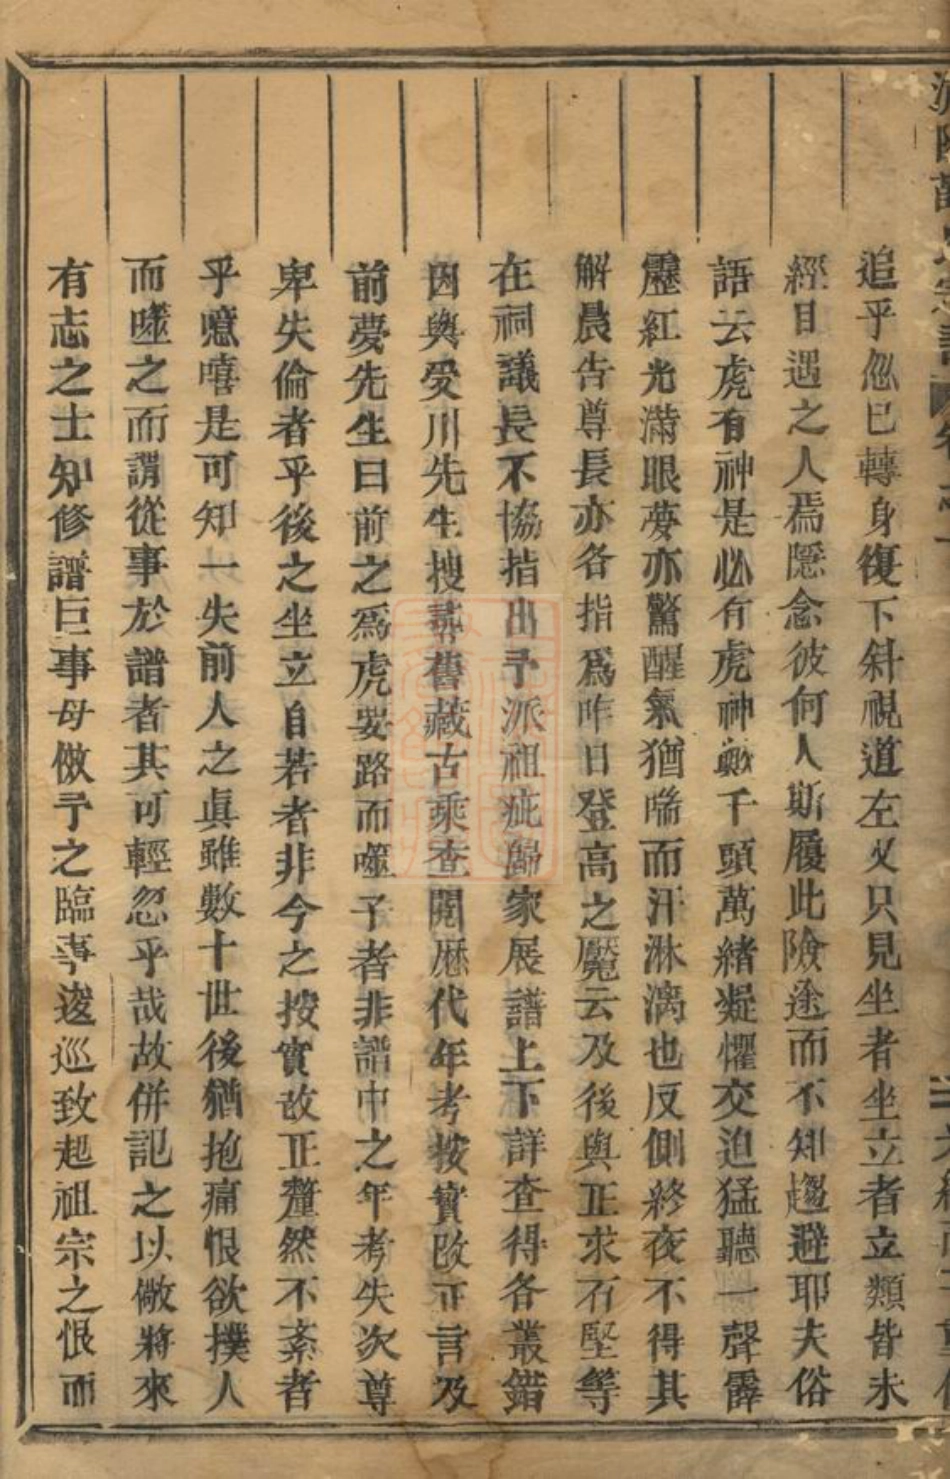 追乎忽已轉身復下斜視道左又只見坐者坐立者立類皆未
經目遇之人焉隱念彼何人斯履此險途而不知趨避耶夫俗
語云虎有神是必有虎神歟千頭萬緒疑懼交迫猛聽一聲霹
靂紅光滿眼夢亦驚醒氣猶喘而汗淋漓也反側終夜不得其
解晨告尊長亦各指爲昨日登高之魘云及後與正求石堅等
在祠議長不協指出予派祖疵歸家展譜上下詳查得各叢錯
因與受川先生搜尋舊藏古乘查閱歷代年考按實改正言及
前夢先生曰前之爲虎要路而噬予者非譜中之年考失次尊
卑失倫者乎後之坐立自若者非今之按實改正釐然不紊者
乎噫嘻是可知一失前人之眞雖數十世後猶抱痛恨欲撲人
而噬之而謂從事於譜者其可輕忽乎哉故併記之以儆將來
有志之士知修譜巨事毋倣予之臨事逡巡致起祖宗之恨而